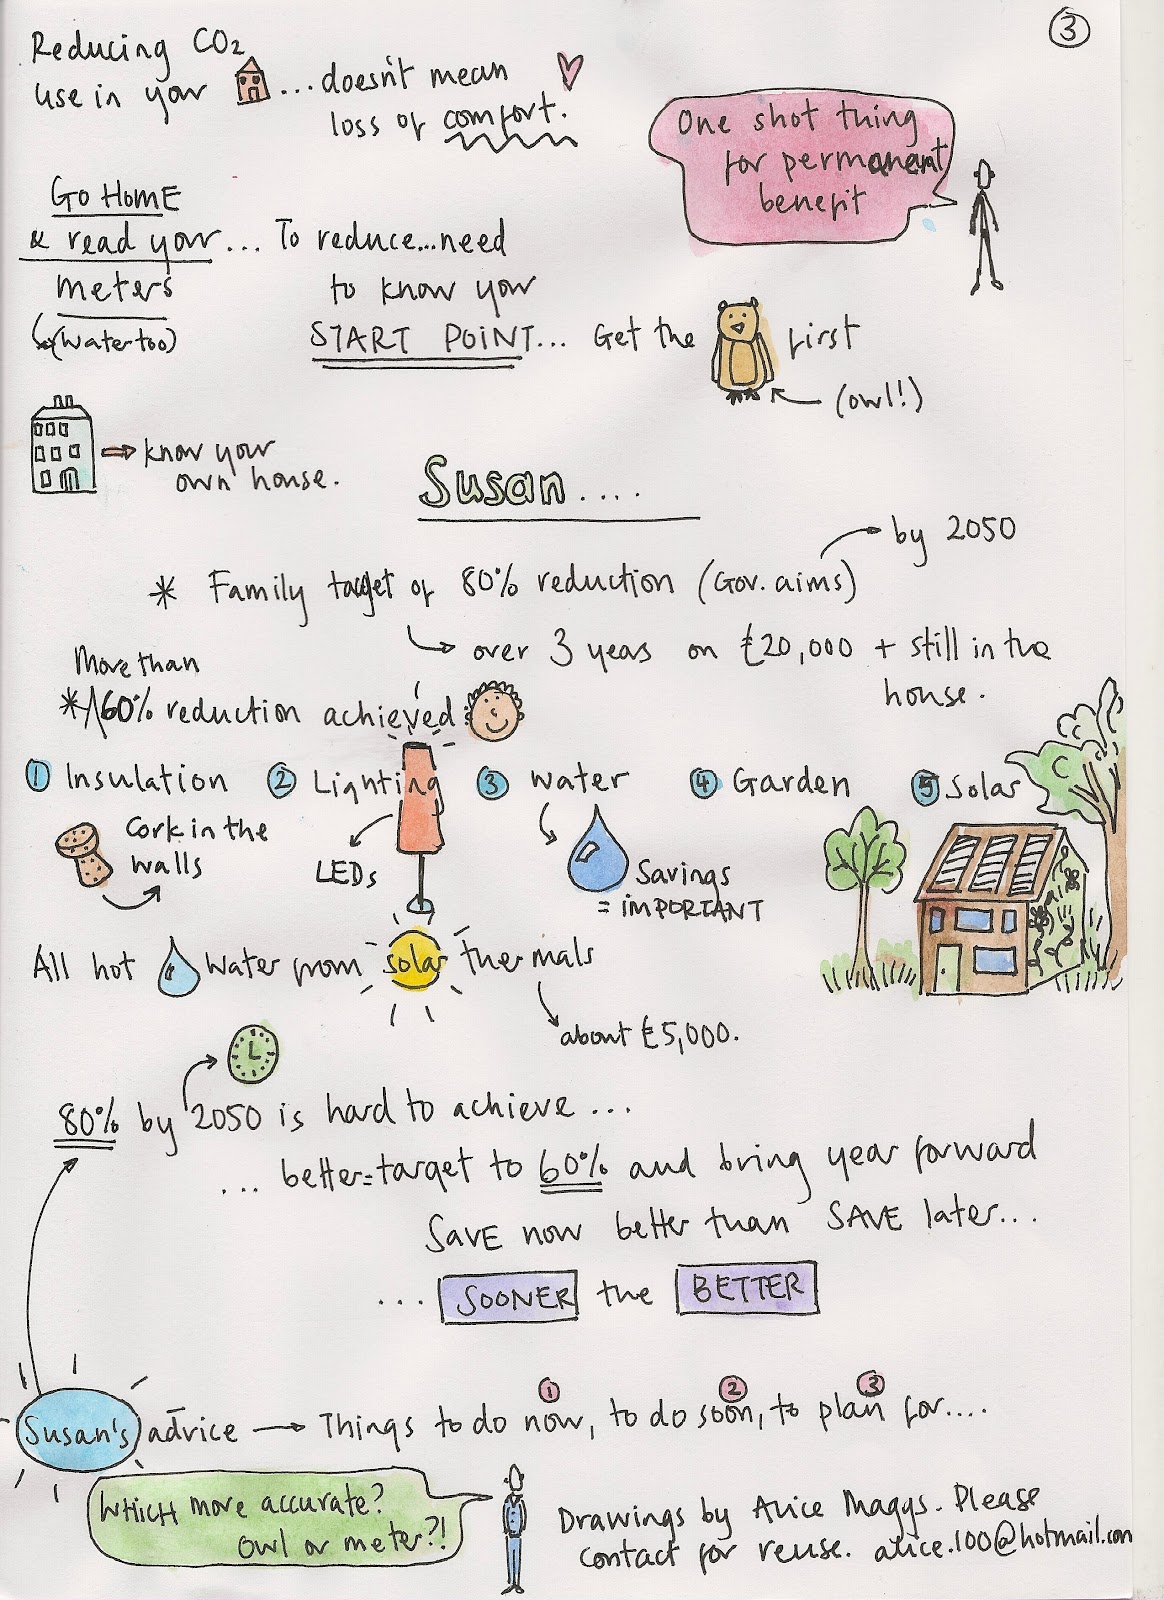 3
Reducing CO2
use in your ... doesn't mean
loss of comfort.
One shot thing
for permanent
benefit
GO HOME
& read your ... To reduce... need
meters to know your
(water too) START POINT... Get the first
(owl!)
know your
own house.
Susan ....
by 2050
* Family target of 80% reduction (Gov. aims)
over 3 years on £20,000 + still in the
house.
More than
* 60% reduction achieved
1 Insulation 2 Lighting 3 Water 4 Garden 5 Solar
Cork in the
walls
LEDs
Savings
= IMPORTANT
All hot water from solar thermals
about £5,000.
80% by 2050 is hard to achieve ...
... better = target to 60% and bring year forward
SAVE now better than SAVE later...
... SOONER the BETTER
1 2 3
Susan's advice → Things to do now, to do soon, to plan for....
WHICH more accurate?
Owl or meter?!
Drawings by Alice Maggs. Please
contact for reuse. alice.100@hotmail.com